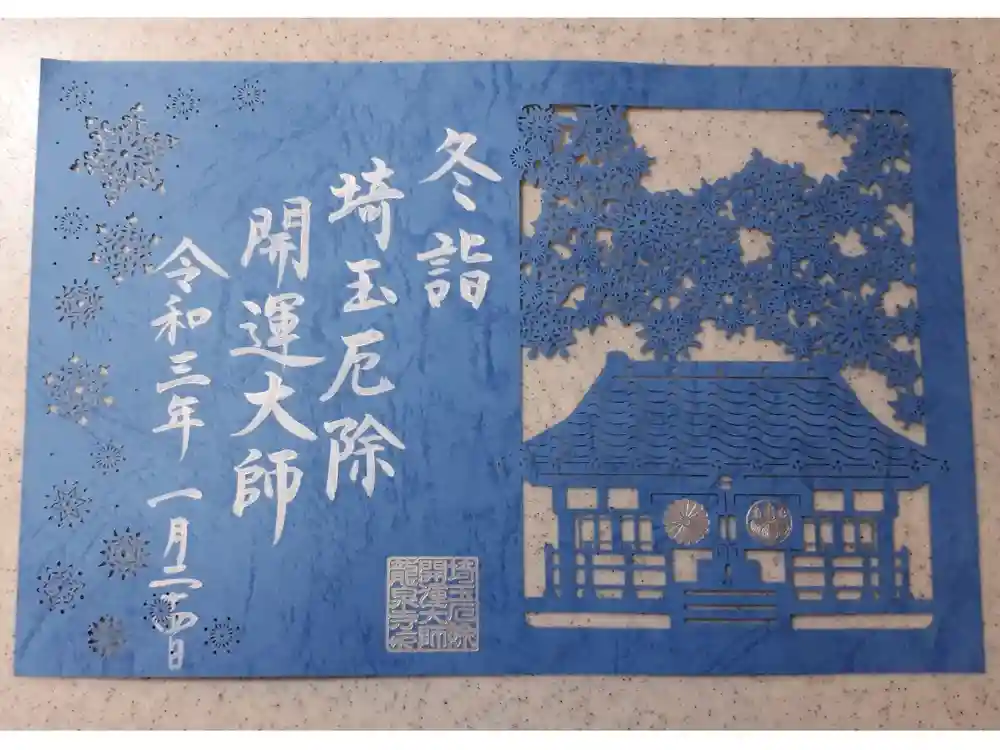 冬詣
埼玉厄除
開運大師
令和三年 一月二十四日
埼玉厄除
開運大師
龍泉寺印